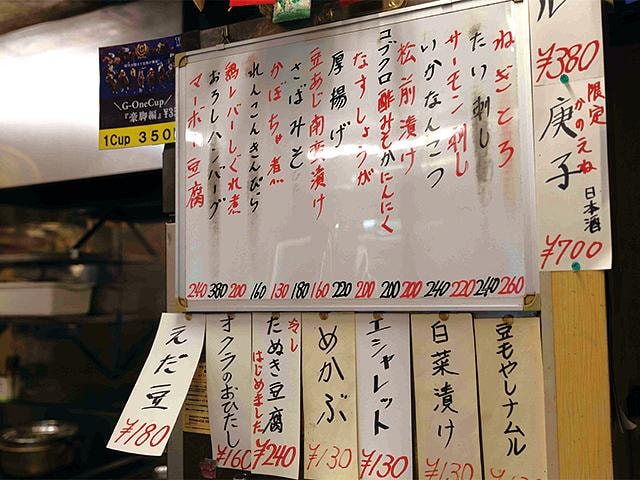 ル
¥380
限定
かのえね
庚子
日本酒
¥700
ねぎとろ 260
たい刺し 240
サーモン刺し 220
いかなんこつ 240
松前漬け 200
コブクロ酢みそかにんにく 200
なすしょうが 200
厚揚げ 220
豆あじ南蛮漬け 160
さばみそ 180
かぼちゃ煮 130
れんこんきんぴら 160
鶏レバーしぐれ煮 200
おろしハンバーグ 380
マーボー豆腐 240
\G-OneCup/
『豪脚編』
1Cup 350
豆もやしナムル
白菜漬け
¥130
エシャレット
¥130
めかぶ
¥130
冷し
たぬき豆腐
はじめました
¥240
オクラのおひたし
¥160
えだ豆
¥180